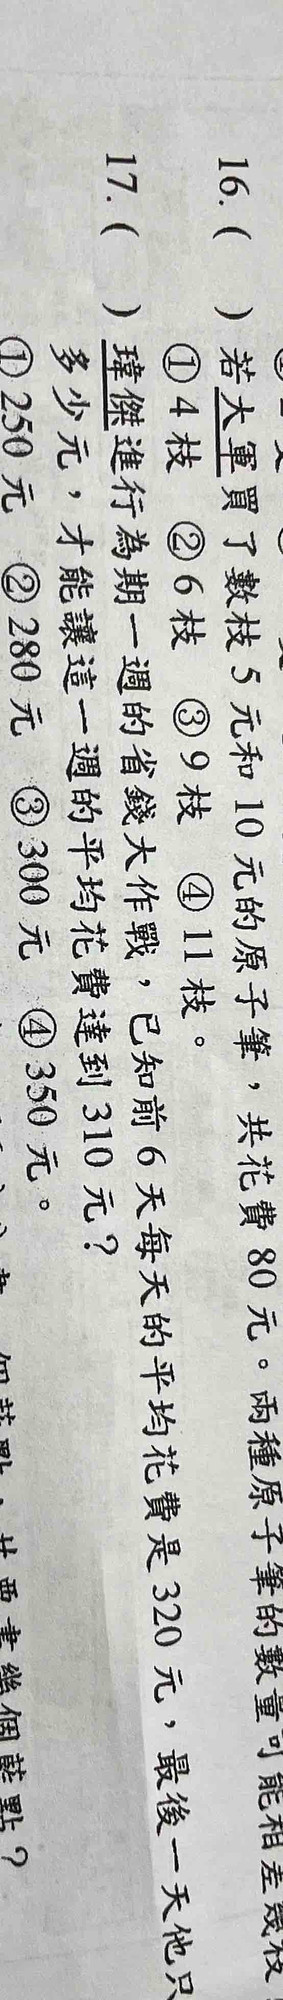 16. (　) 若大軍買了數枝5元和10元的原子筆，共花費80元。兩種原子筆的數量可能相差幾枝
①4枝 ②6枝 ③9枝 ④11枝。
17. (　) 瑋傑進行為期一週的省錢大作戰，已知前6天每天的平均花費是320元，最後一天他只
多少元，才能讓這一週的平均花費達到310元？
①250元 ②280元 ③300元 ④350元。
個藍點，共要畫幾個藍點？